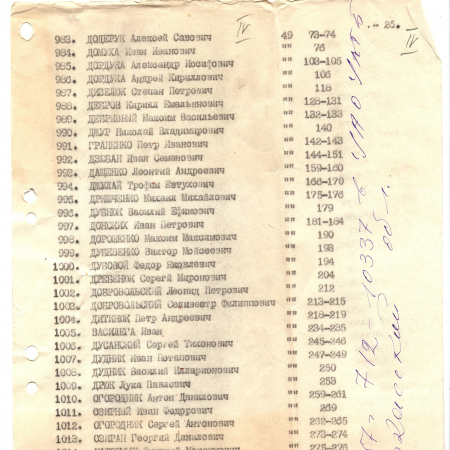 - 26.
IV
IV
983. ДОДЕРУК Алексей Савович 49 73-74
984. ДОМУХА Иван Иванович "" 76
985. ДОРДУКА Александр Иосифович "" 103-105
986. ДОРДУКА Андрей Кириллович "" 106
987. ДИЗЕЛЮК Степан Петрович "" 118
988. Кирилл Емельянович "" 128-131
989. Максим Васильевич "" 132-133
990. ДЖУР Николай Владимирович "" 140
991. ГРАПЕНКО Петр Иванович "" 142-143
992. ДЗЮБАН Иван Семенович "" 144-151
992. ДАЩЕНКО Леонтий Андреевич "" 159-160
994. ДЖУЛАЙ Трофим Евтухович "" 166-170
995. Михаил Михайлович "" 175-176
996. ДУБНЮК Василий Ефимович "" 179
997. ДОНСКИХ Иван Петрович "" 181-184
998. ДОРОШЕНКО Максим Максимович "" 190
999. Виктор Моисеевич "" 193
1000. ДУБОВОЙ Федор Яковлевич "" 194
1001. ДРЕБЕНЮК Сергей Миронович "" 204
1002. ДОБРОВОЛЬСКИЙ Леонид Петрович "" 212
1003. ДОБРОВОЛЬСКИЙ Селивестр Филиппович "" 213-215
1004. ДИТИНЮК Петр Андреевич "" 218-219
1005. ВАСИЛЕГА Иван "" 234-235
1006. ДУСАНСКИЙ Сергей Тихонович "" 245-246
1007. ДУДНИК Иван Потапович "" 247-249
1008. ДУДНИК Василий Илларионович "" 250
1009. ДРЮК Лука Павлович "" 253
1010. ОГОРОДНИК Антон Данилович "" 259-261
1011. ОЗИРНЫЙ Иван Федорович "" 269
1012. ОГОРОДНИК Сергей Антонович "" 262-265
1013. ОЗИРАН Георгий Данилович "" 273-274
"" 275-276